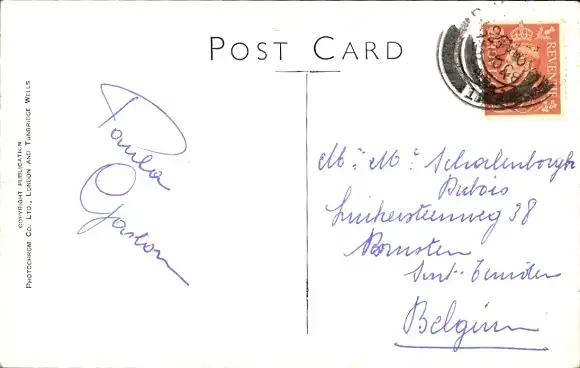 POST CARD
REVENUE
COPYRIGHT PUBLICATION
PHOTOCHROM CO. LTD., LONDON AND TUNBRIDGE WELLS
Paula
Gaston
Mr Mr Schalenborgh
Dubois
Luikersteenweg 38
Sint-Truiden
Belgium